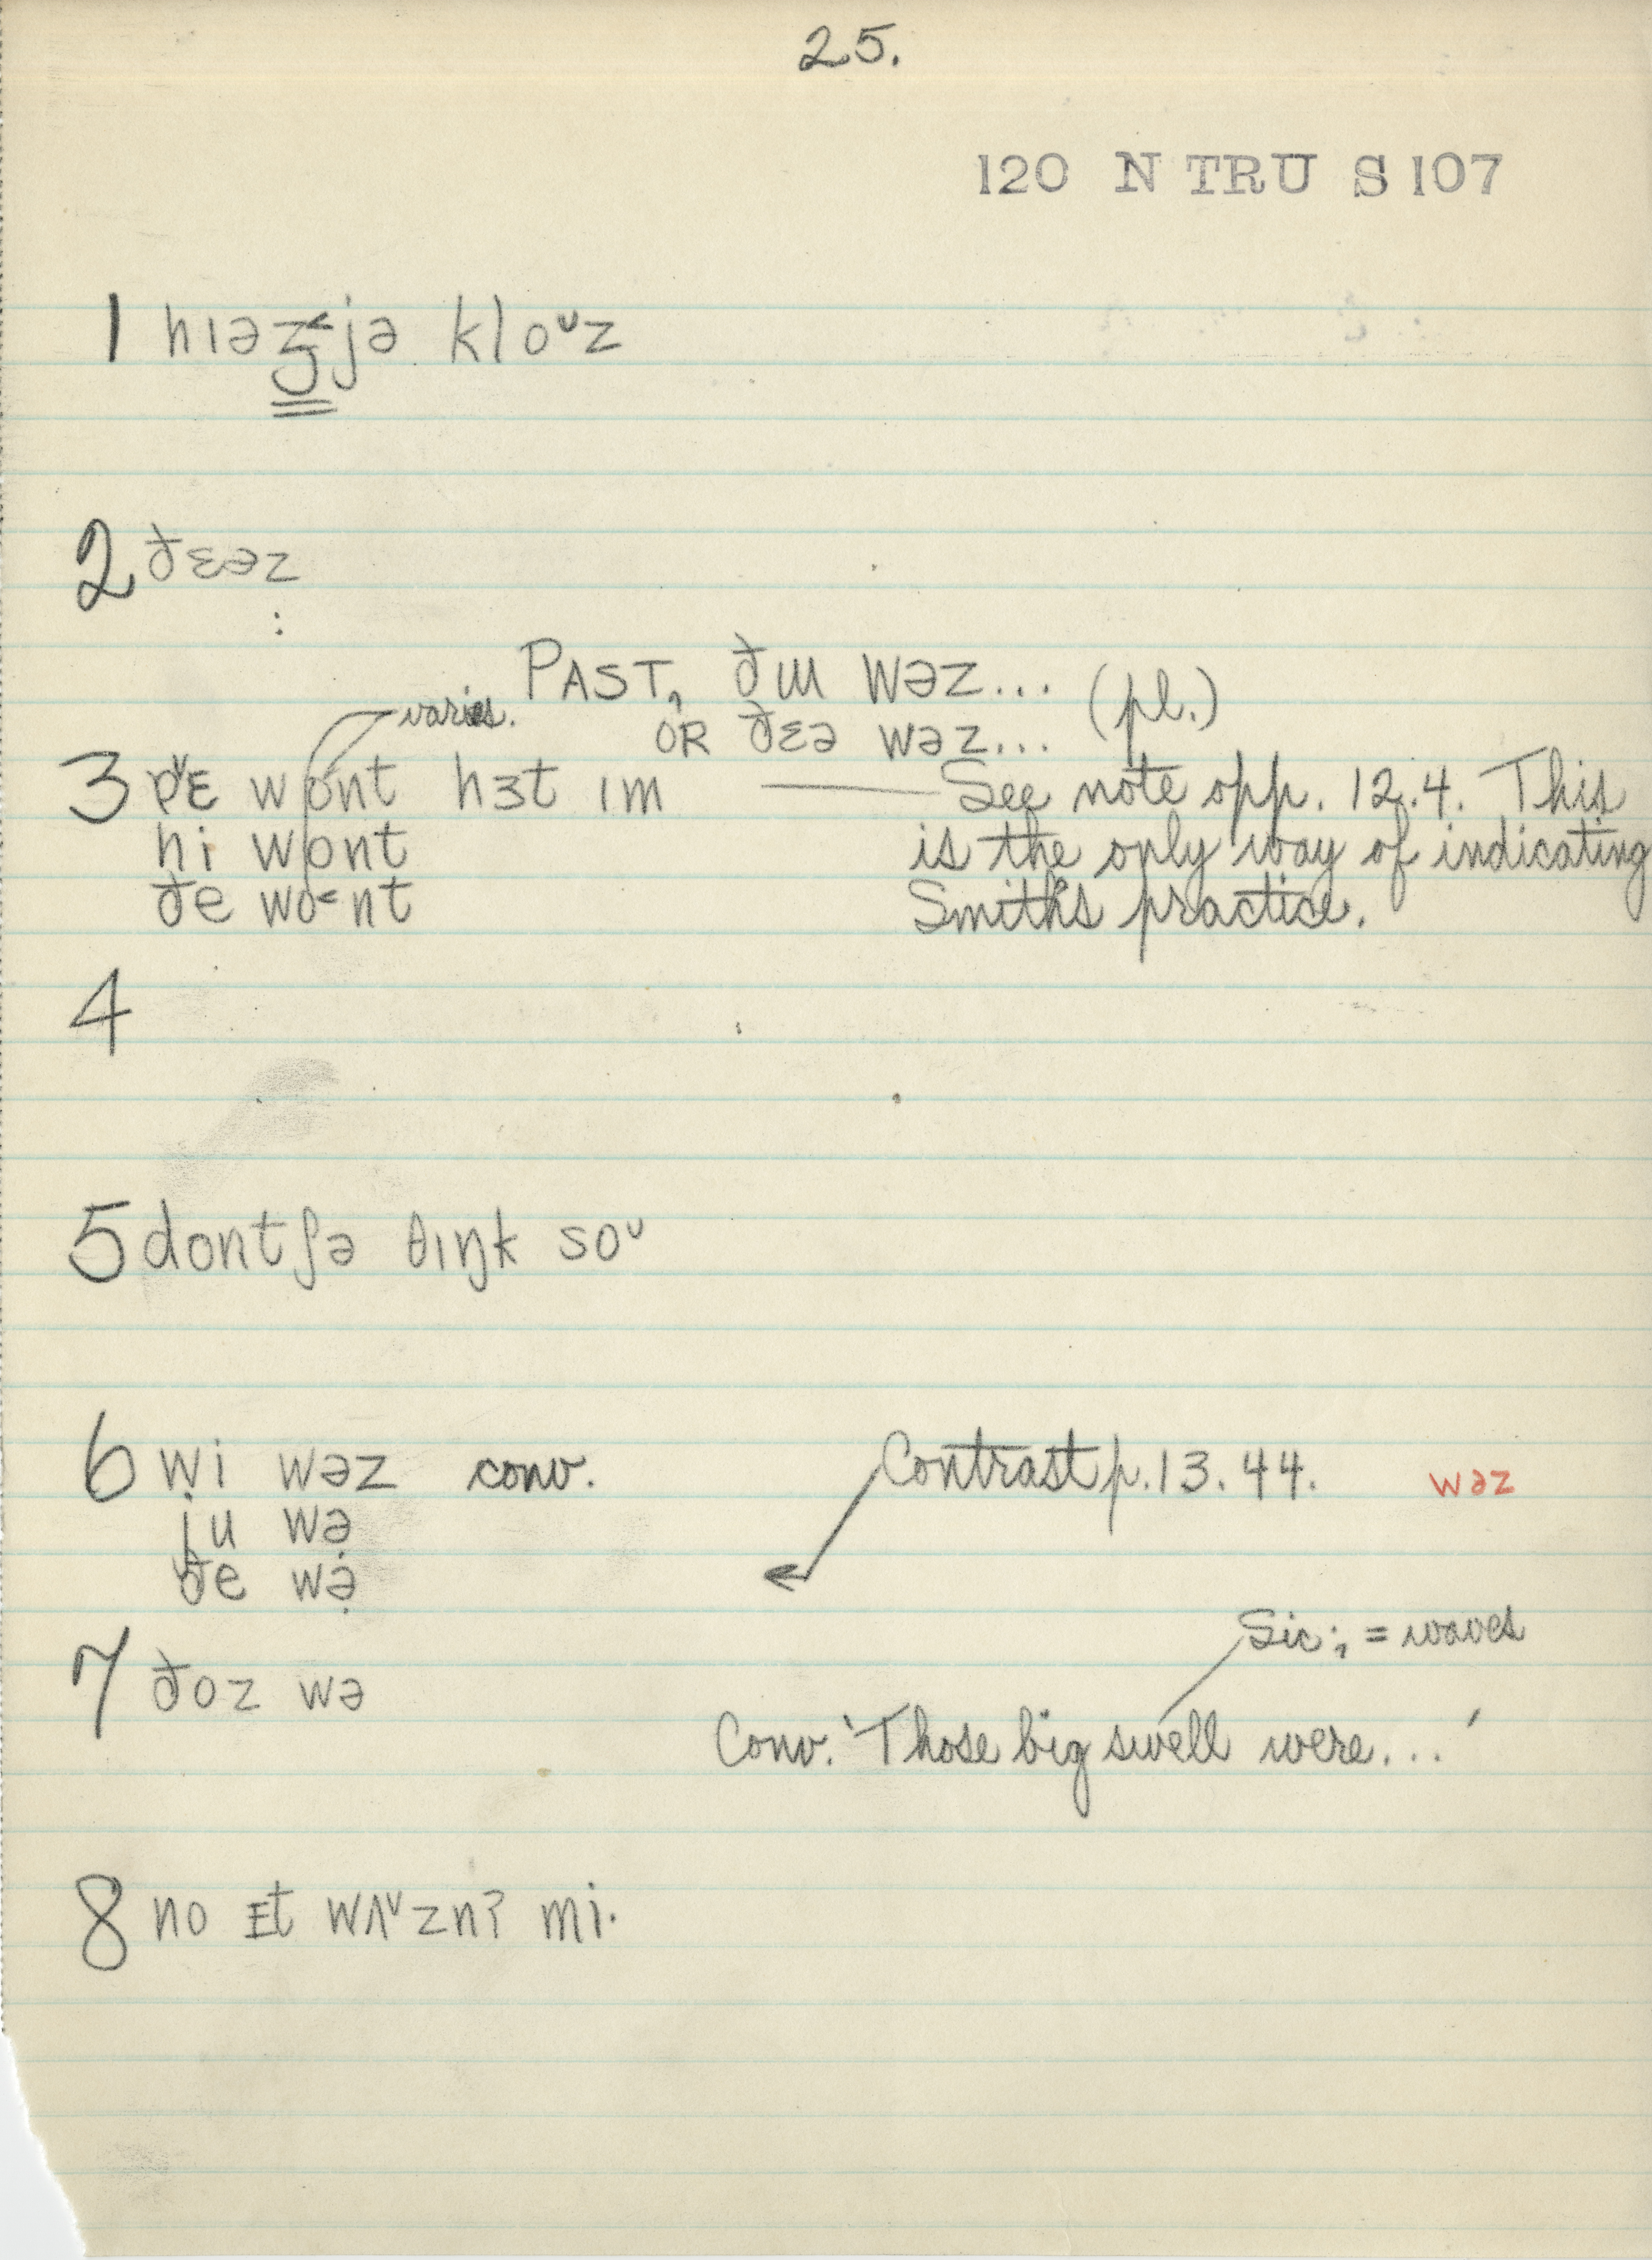 25.
120 N TRU S 107
1 hɪəʒ˂jə kloᵛz
2 ðɛəz
PAST, ðɯ wəz... (pl.)
OR ðɛə wəz...
varies.
3 wont hɜt ɪm — See note opp. 12.4. This
hi wont is the only way of indicating
ðe wo˂nt Smith's practice.
4
5 dontʃə θɪŋk soᵛ
6 wi wəz conv. Contrast p. 13. 44. wəz
ju wə̣
ðe wə̣
Sic; = waves
7 ðoz wə
Conv. 'Those big swell were...'
8 no ɪt wʌᵛznʔ mi·